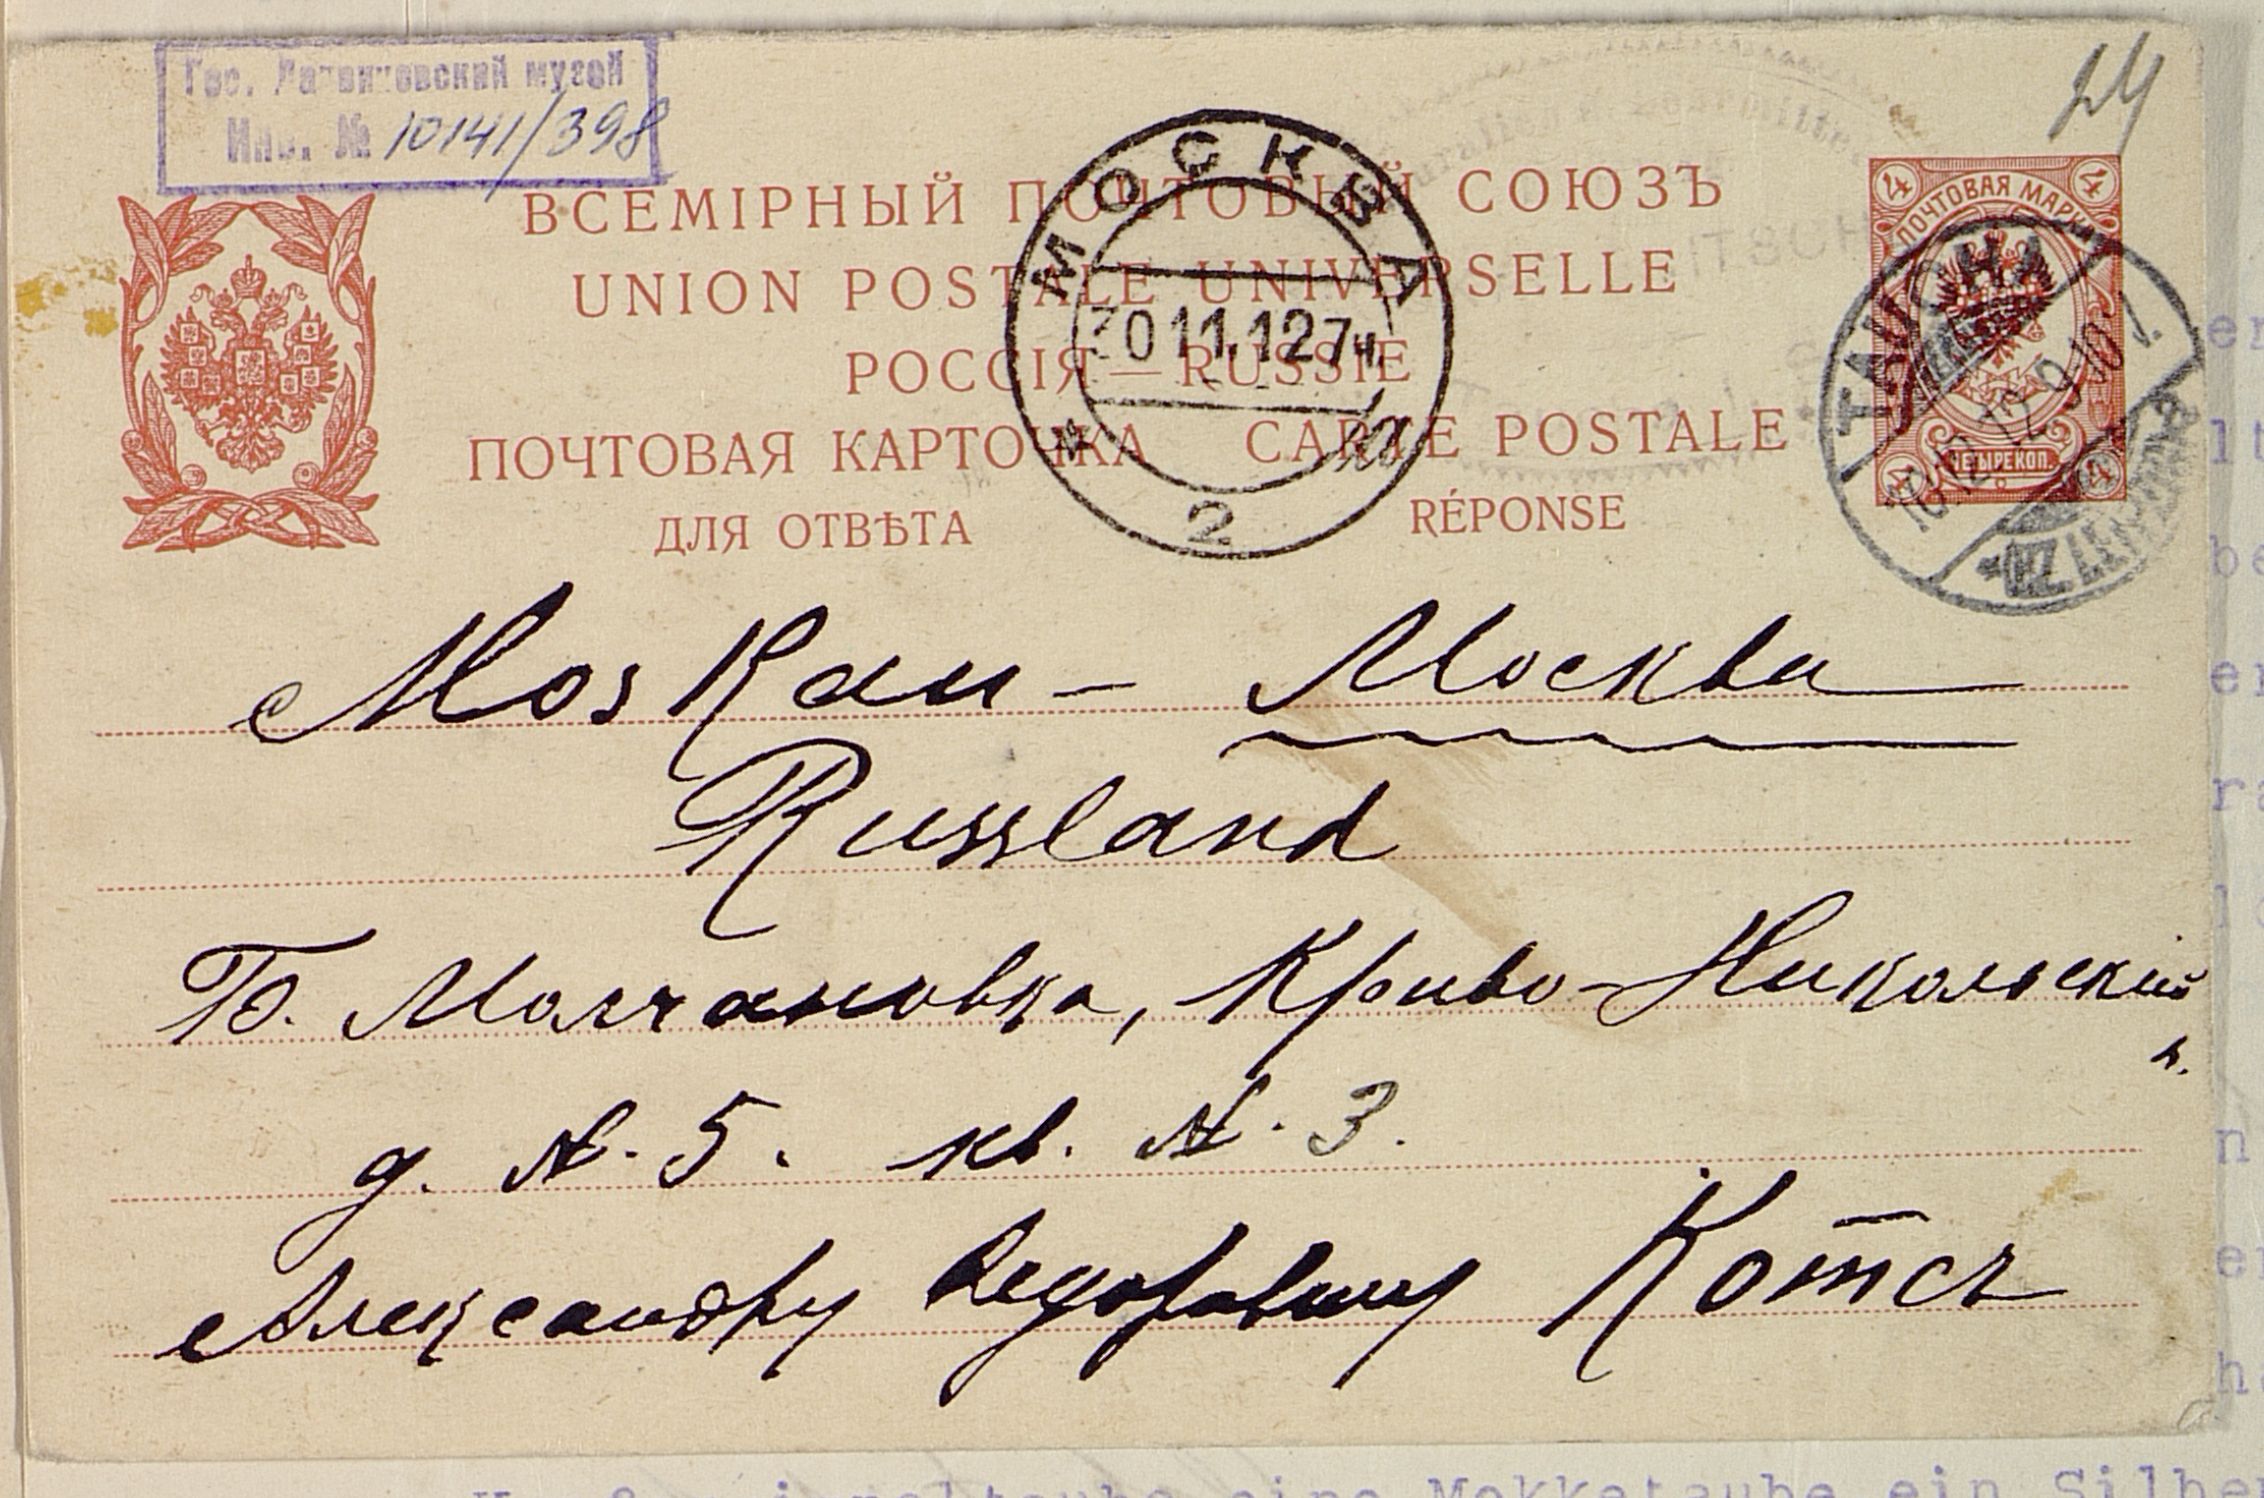 Гос. Дарвиновский музей
Инв. № 10141/398
24
ВСЕМІРНЫЙ ПОЧТОВЫЙ СОЮЗЪ
UNION POSTALE UNIVERSELLE
РОССІЯ — RUSSIE
ПОЧТОВАЯ КАРТОЧКА CARTE POSTALE
ДЛЯ ОТВѢТА RÉPONSE
МОСКВА
30 11.12 7ч.
2
4 ПОЧТОВАЯ МАРКА 4
4 ЧЕТЫРЕ КОП. 4
TAUCHA
10.12.12. 9-10 V.
*(BZ. LEIPZIG)*
Moskau - Москва
Russland
Б. Молчановка, Криво-Никольскій
п.
д. №. 5. кв. №. 3.
Александру Федоровичу Котсъ